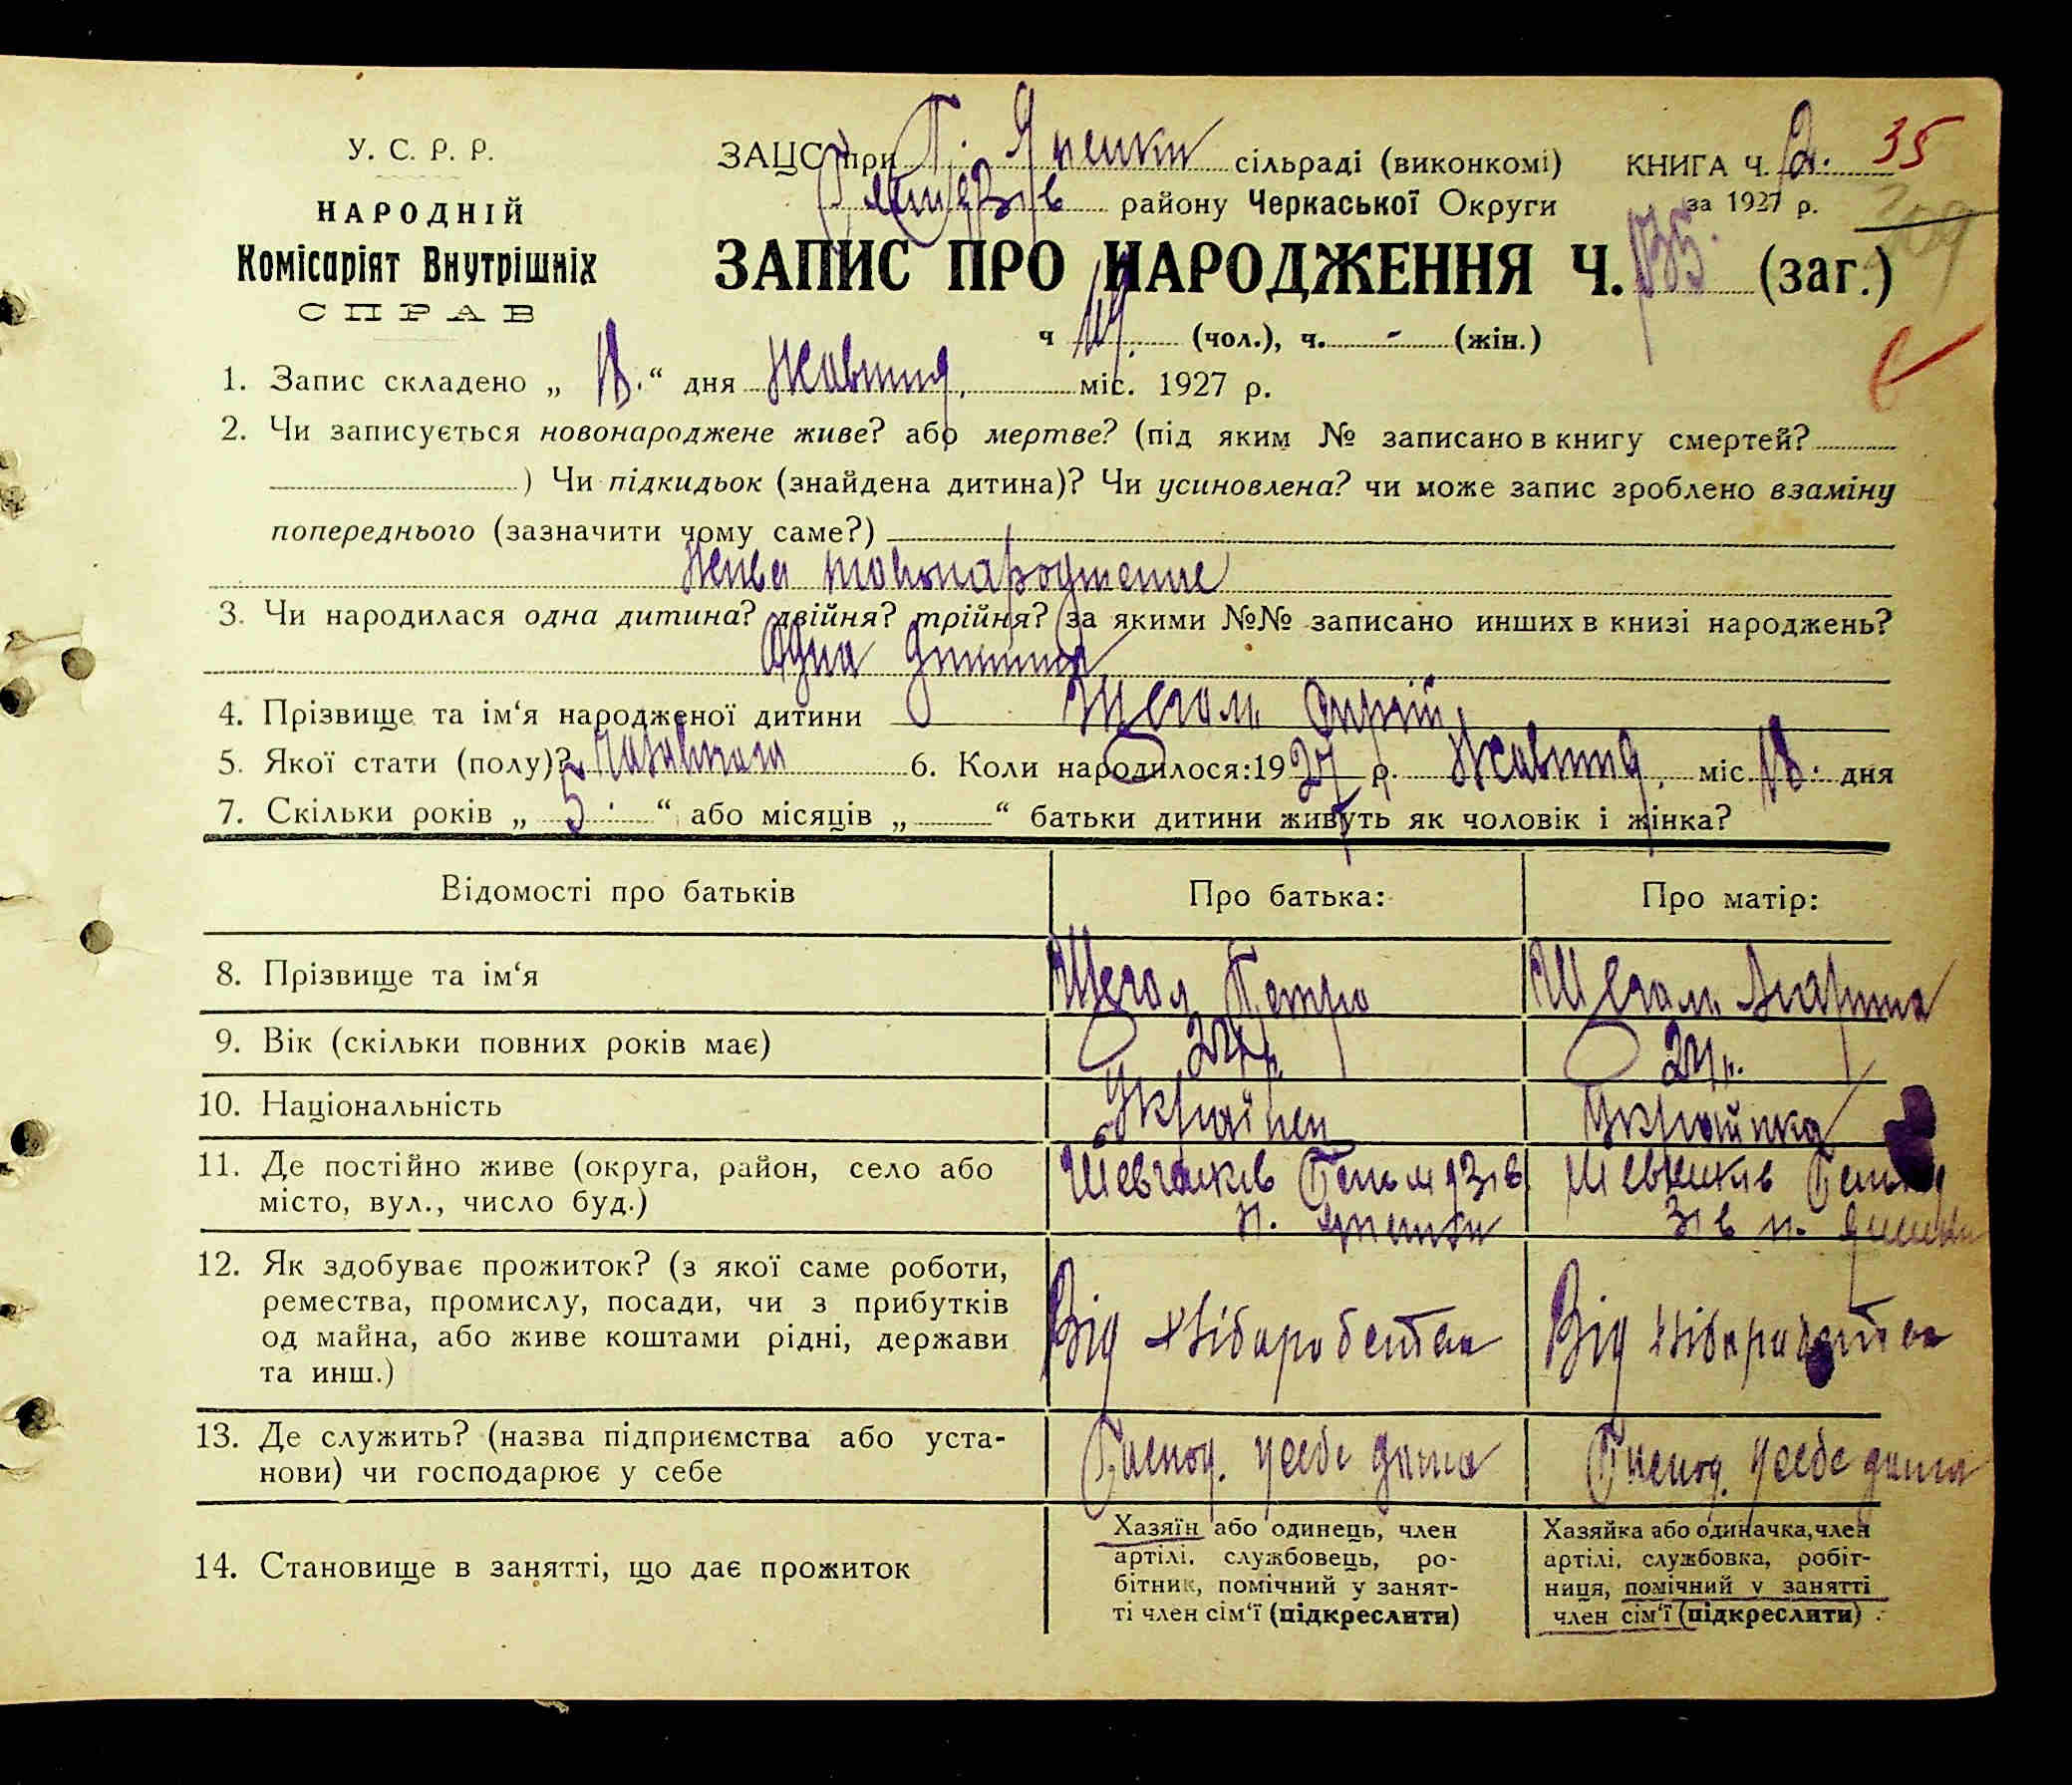 У. С. Р. Р.
НАРОДНІЙ
Комісаріят Внутрішніх
СПРАВ
ЗАЦС при сільраді (виконкомі)
району Черкаської Округи
КНИГА Ч. 2. 35
за 1927 р.
ЗАПИС ПРО НАРОДЖЕННЯ Ч. (заг.)
ч (чол.), ч. - (жін.)
1. Запис складено „ 18. “ дня Жовтня міс. 1927 р.
2. Чи записується новонароджене живе? або мертве? (під яким № записано в книгу смертей?
) Чи підкидьок (знайдена дитина)? Чи усиновлена? чи може запис зроблено взаміну
попереднього (зазначити чому саме?)
Живе новонароджене
3. Чи народилася одна дитина? двійня? трійня? за якими №№ записано инших в книзі народжень?
Одна дитина
4. Прізвище та ім‘я народженої дитини
5. Якої стати (полу)? 6. Коли народилося: 1927 р. Жовтня міс. 18. дня
7. Скільки років „ 5 “ або місяців „ “ батьки дитини живуть як чоловік і жінка?
Відомості про батьків
Про батька:
Про матір:
8. Прізвище та ім‘я
Петро
9. Вік (скільки повних років має)
10. Національність
Українець
Українка
11. Де постійно живе (округа, район, село або
місто, вул., число буд.)
12. Як здобуває прожиток? (з якої саме роботи,
ремества, промислу, посади, чи з прибутків
од майна, або живе коштами рідні, держави
та инш.)
Від хліборобства
Від хліборобства
13. Де служить? (назва підприємства або уста-
нови) чи господарює у себе
Господ. у себе дома
Господ. у себе дома
14. Становище в занятті, що дає прожиток
Хазяїн або одинець, член
артілі, службовець, ро-
бітник, помічний у занят-
ті член сім‘ї (підкреслити)
Хазяйка або одиначка, член
артілі, службовка, робіт-
ниця, помічний у занятті
член сім‘ї (підкреслити)